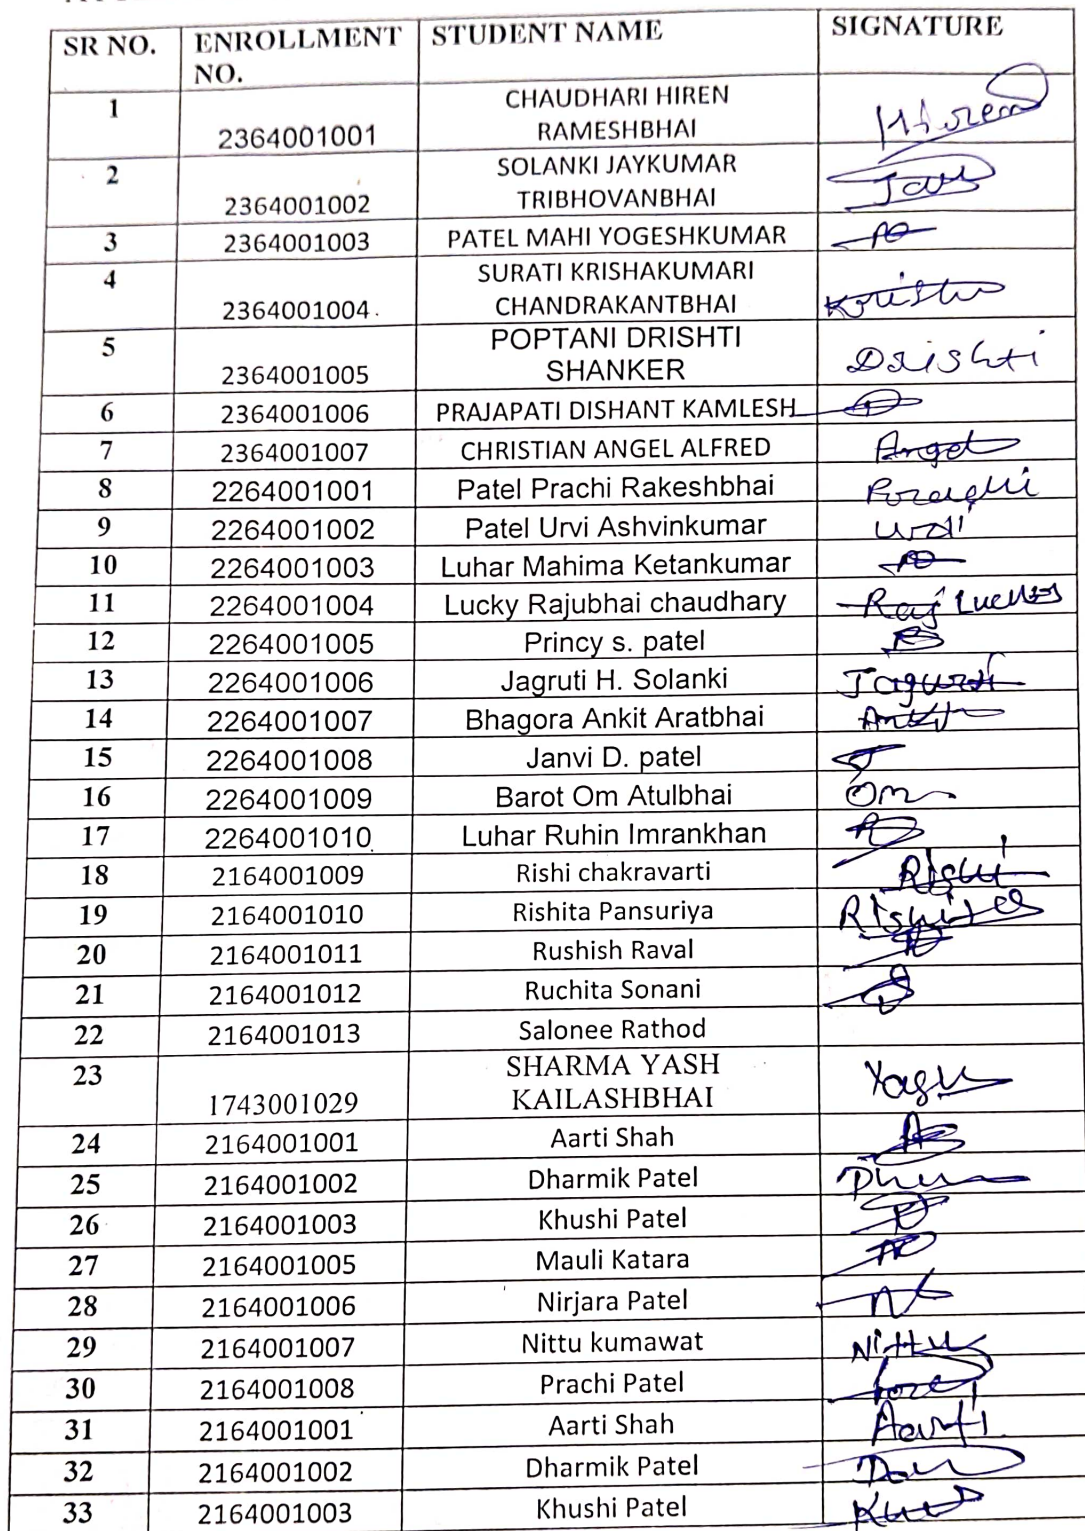 SR NO. ENROLLMENT NO. STUDENT NAME SIGNATURE
1 2364001001 CHAUDHARI HIREN RAMESHBHAI Hiren
2 2364001002 SOLANKI JAYKUMAR TRIBHOVANBHAI Jay
3 2364001003 PATEL MAHI YOGESHKUMAR
4 2364001004 SURATI KRISHAKUMARI CHANDRAKANTBHAI
5 2364001005 POPTANI DRISHTI SHANKER Drishti
6 2364001006 PRAJAPATI DISHANT KAMLESH
7 2364001007 CHRISTIAN ANGEL ALFRED Angel
8 2264001001 Patel Prachi Rakeshbhai Prachi
9 2264001002 Patel Urvi Ashvinkumar Urvi
10 2264001003 Luhar Mahima Ketankumar
11 2264001004 Lucky Rajubhai chaudhary Raj
12 2264001005 Princy s. patel
13 2264001006 Jagruti H. Solanki Jagruti
14 2264001007 Bhagora Ankit Aratbhai Ankit
15 2264001008 Janvi D. patel
16 2264001009 Barot Om Atulbhai Om
17 2264001010 Luhar Ruhin Imrankhan
18 2164001009 Rishi chakravarti Rishi
19 2164001010 Rishita Pansuriya Rishita
20 2164001011 Rushish Raval
21 2164001012 Ruchita Sonani
22 2164001013 Salonee Rathod
23 1743001029 SHARMA YASH KAILASHBHAI Yash
24 2164001001 Aarti Shah
25 2164001002 Dharmik Patel
26 2164001003 Khushi Patel
27 2164001005 Mauli Katara
28 2164001006 Nirjara Patel
29 2164001007 Nittu kumawat Nittu
30 2164001008 Prachi Patel
31 2164001001 Aarti Shah Aarti
32 2164001002 Dharmik Patel
33 2164001003 Khushi Patel